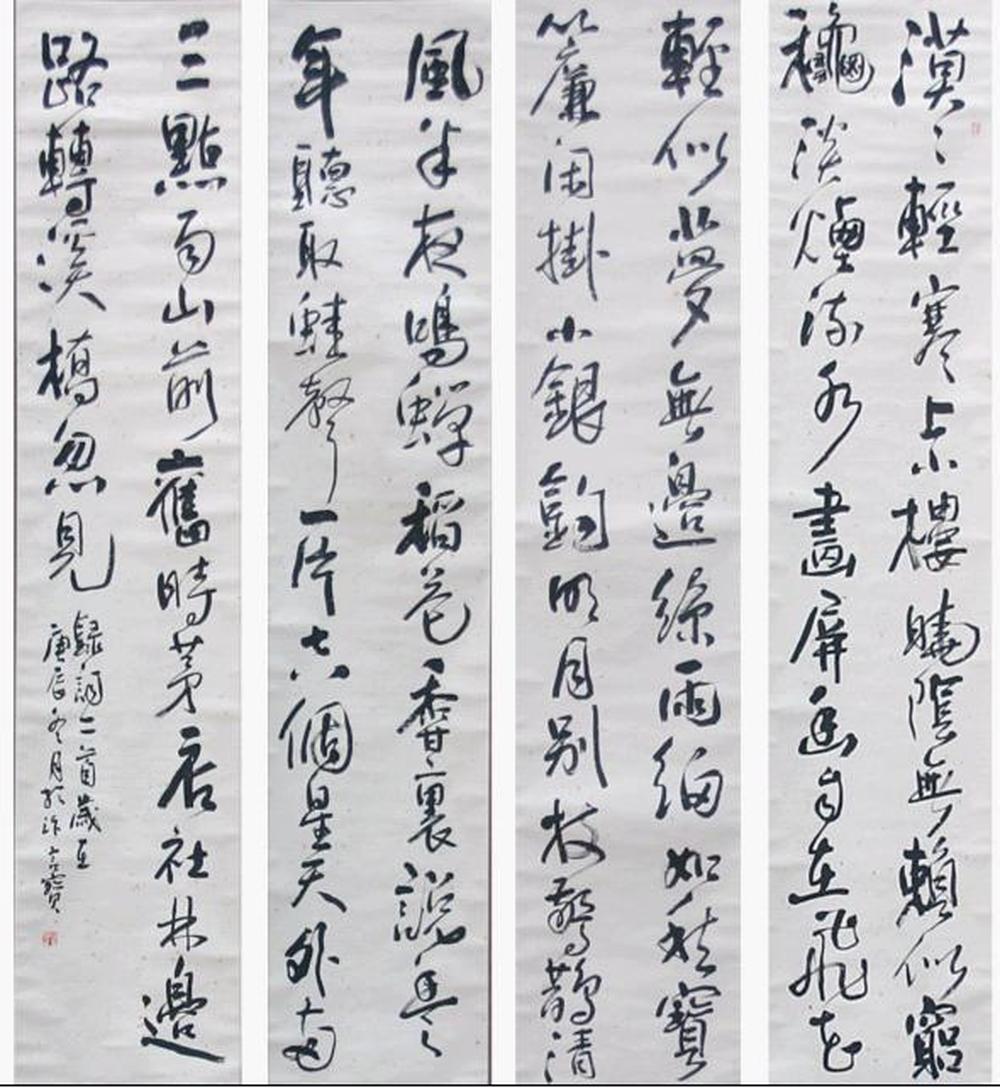 漠〻輕寒上小樓曉陰無賴似窮
龝淡煙流水畫屏幽自在飛花
輕似夢無邊絲雨細如愁寶
簾閑掛小銀鉤明月別枝驚鵲清
風半夜鳴蟬稻花香裏說豐
年聽取蛙聲一片七八個星天外兩
三點雨山前舊時茅店社林邊
路轉溪橋忽見
錄詞二首歲在
庚辰冬月於